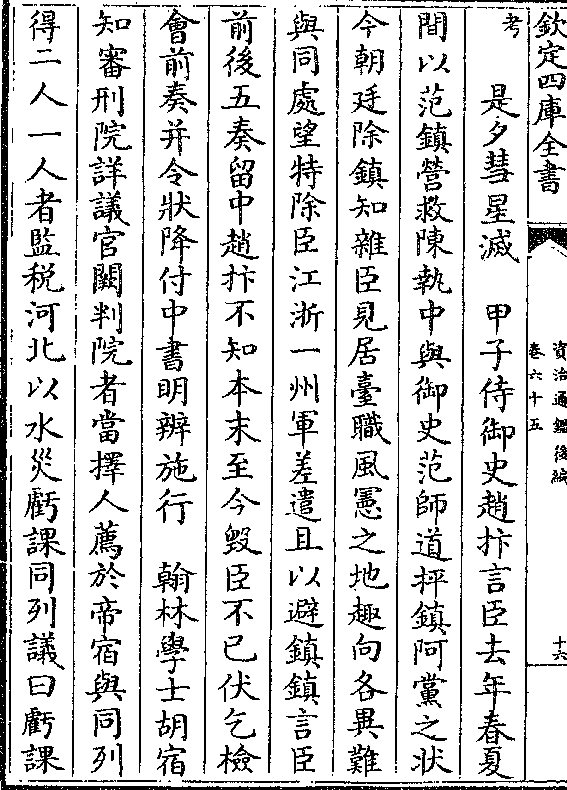 欽定四庫全書
資治通鑑後編
卷六十五
十六
考　是夕彗星滅　甲子侍御史趙抃言臣去年春夏
間以范鎮營救陳執中與御史范師道抨鎮阿黨之狀
今朝廷除鎮知雜臣見居臺職風憲之地趣向各異難
與同處望特除臣江浙一州軍差遣且以避鎮鎮言臣
前後五奏留中趙抃不知本末至今毀臣不已伏乞檢
會前奏并令狀降付中書明辨施行　翰林學士胡宿
知審刑院詳議官闕判院者當擇人薦於帝宿與同列
得二人一人者監稅河北以水災虧課同列議曰虧課